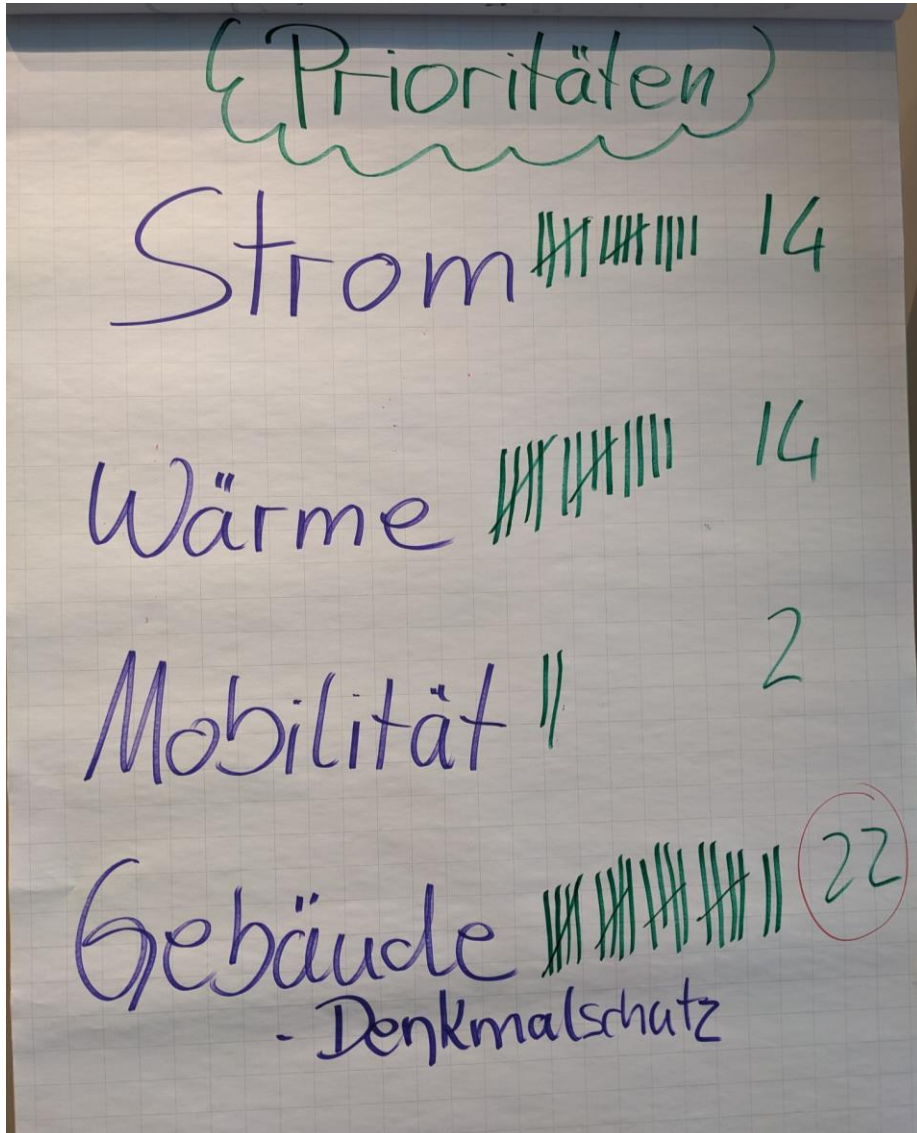 Prioritäten
Strom 14
Wärme 14
Mobilität 2
Gebäude 22
- Denkmalschutz